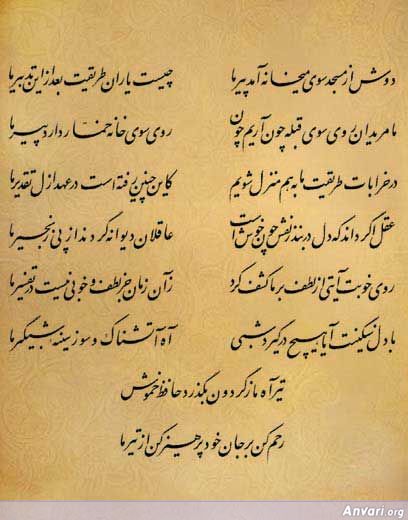 دوش از مسجد سوی میخانه آمد پیر ما
چیست یاران طریقت بعد ازین تدبیر ما
ما مریدان روی سوی قبله چون آریم چون
روی سوی خانه خمّار دارد پیر ما
در خرابات طریقت ما بهم منزل شویم
کاین چنین رفته است در عهد ازل تقدیر ما
عقل اگر داند که دل در بند زلفش چون خوش است
عاقلان دیوانه گردند از پی زنجیر ما
روی خوبت آیتی از لطف بر ما کشف کرد
زآن زمان جز لطف و خوبی نیست در تفسیر ما
با دل سنگینت آیا هیچ درگیرد شبی
آه آتشناک و سوز سینه شبگیر ما
تیر آه ما ز گردون بگذرد حافظ خموش
رحم کن بر جان خود پرهیز کن از تیر ما
Anvari.org